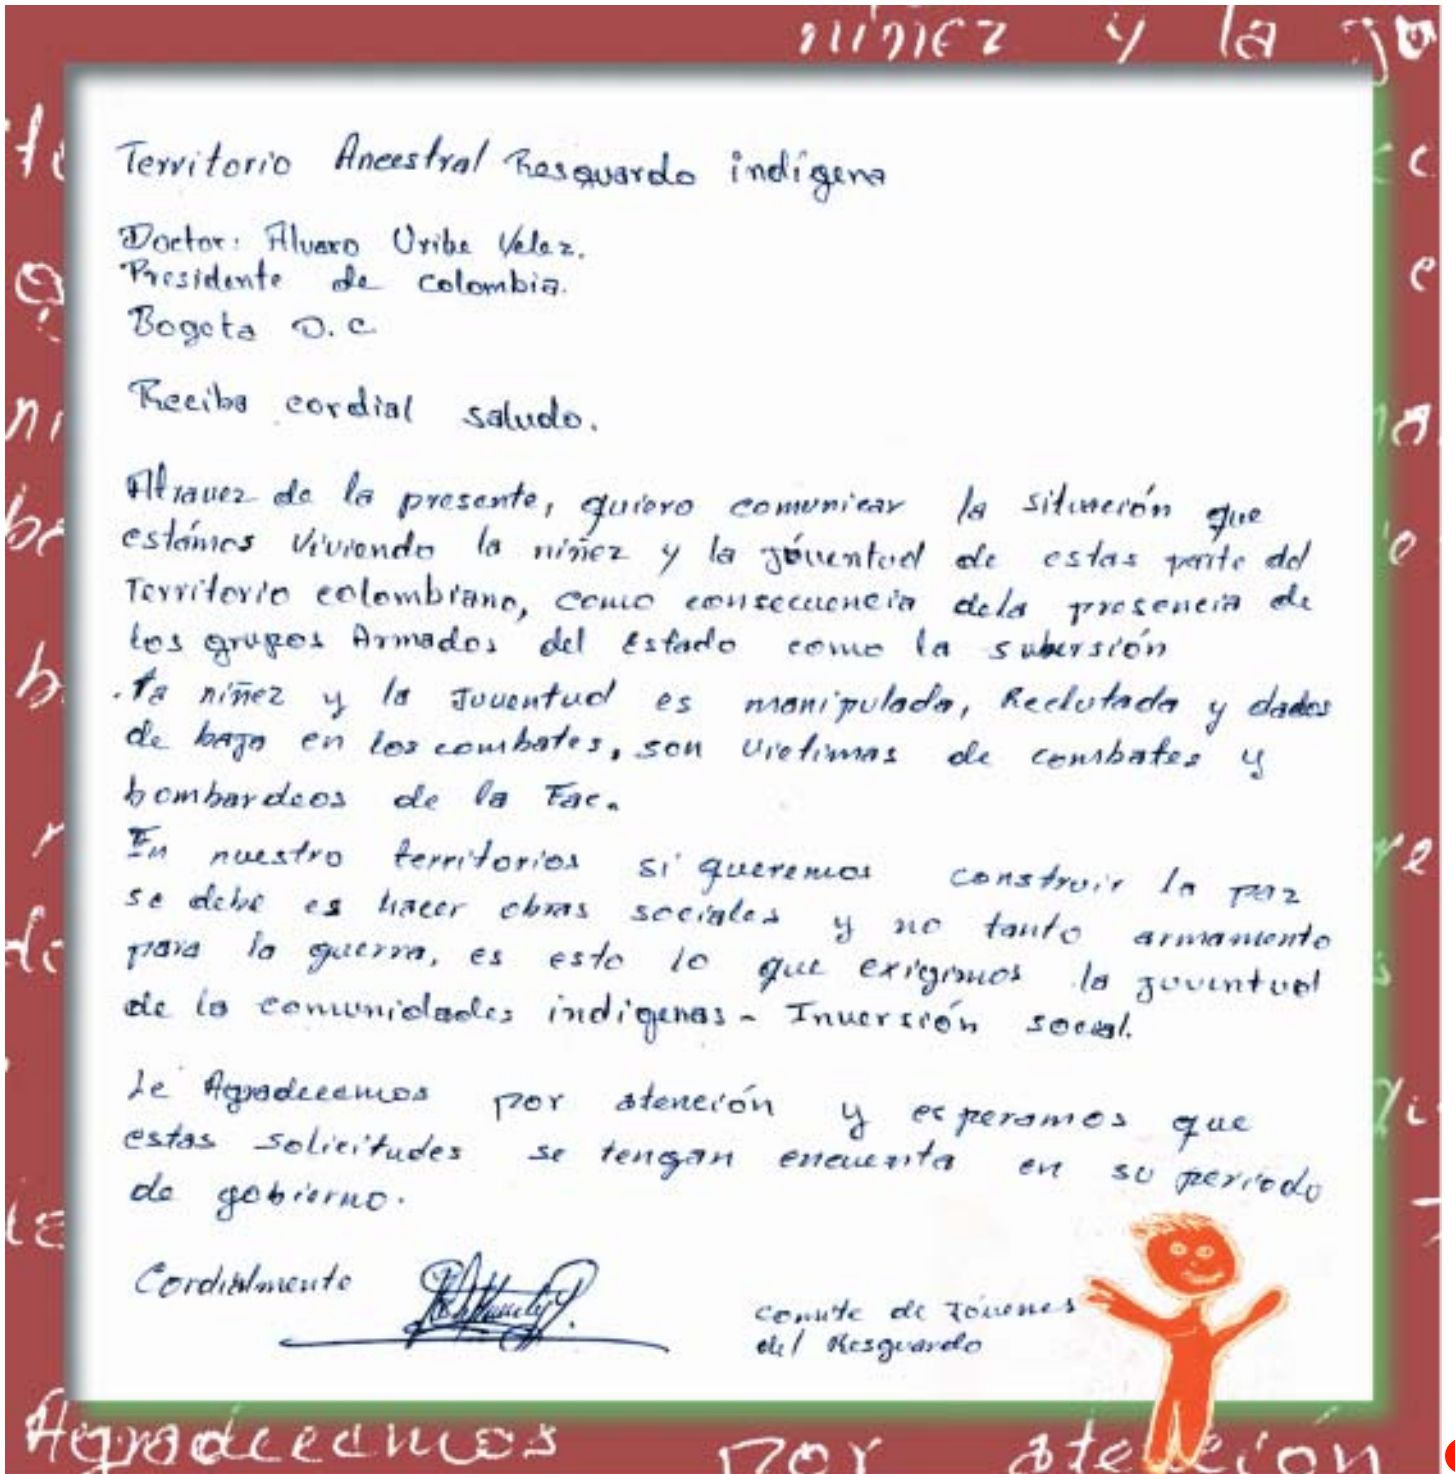 niñez y la ju
Territorio Ancestral Resguardo indígena
Doctor: Alvaro Uribe Velez.
Presidente de colombia.
Bogota D.C
Reciba cordial saludo.
Atravez de la presente, quiero comunicar la situación que
estámos viviendo la niñez y la jóventud de estas parte del
Territorio colombiano, como consecuencia dela presencia de
los grupos Armados del Estado como la subersión
. La niñez y la Juventud es manipulada, Reclutada y dados
de baja en los combates, son victimas de combates y
bombardeos de la Fac.
En nuestro territorios si queremos construir la paz
se debe es hacer obras sociales y no tanto armamento
para la guerra, es esto lo que exigimos la juventud
de la comunidades indigenas - Inversión social.
Le Agradecemos por atención y esperamos que
estas solicitudes se tengan encuenta en su periodo
de gobierno.
Cordialmente
Comite de Jóvenes
del Resguardo
Agradecemos por atención